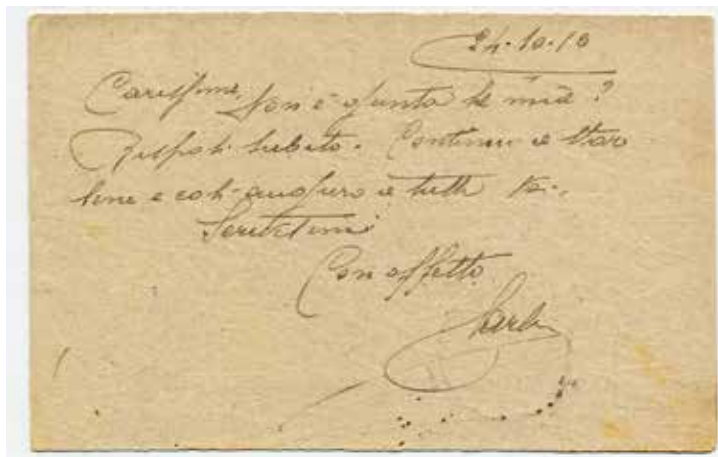 24-10-18
Carissima, Non è giunta la mia?
Risposi subito. Continuo a star
bene e così auguro a tutti
Scrivetemi
Con affetto
Carlo